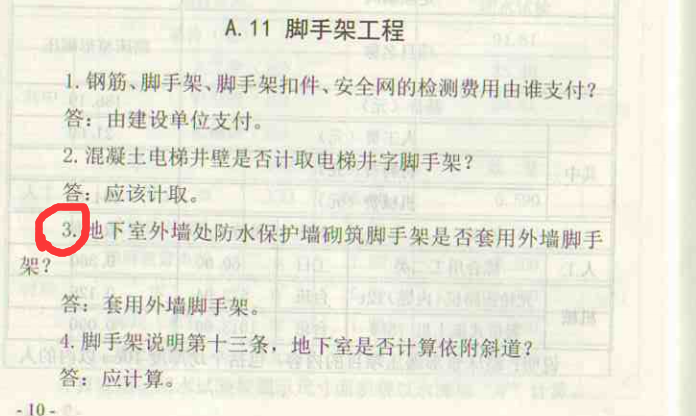 A.11 脚手架工程
1. 钢筋、脚手架、脚手架扣件、安全网的检测费用由谁支付？
答：由建设单位支付。
2. 混凝土电梯井壁是否计取电梯井字脚手架？
答：应该计取。
3. 地下室外墙处防水保护墙砌筑脚手架是否套用外墙脚手
架？
答：套用外墙脚手架。
4. 脚手架说明第十三条，地下室是否计算依附斜道？
答：应计算。
- 10 -